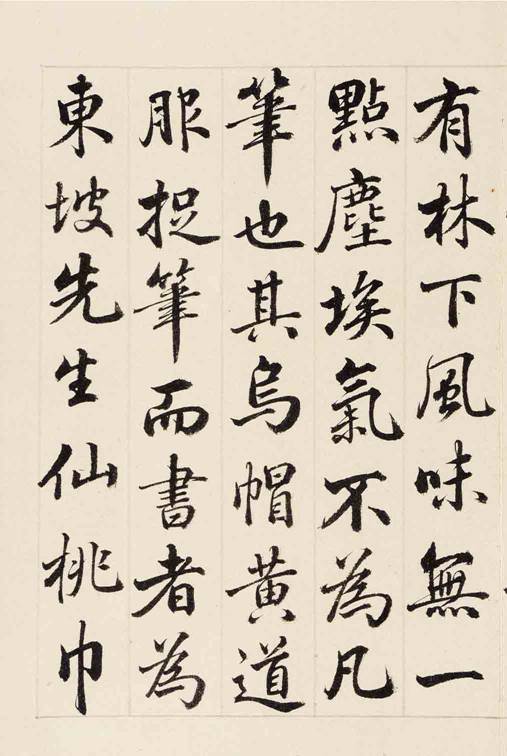 有林下風味無一
點塵埃氣不為凡
筆也其烏帽黃道
服捉筆而書者為
東坡先生仙桃巾